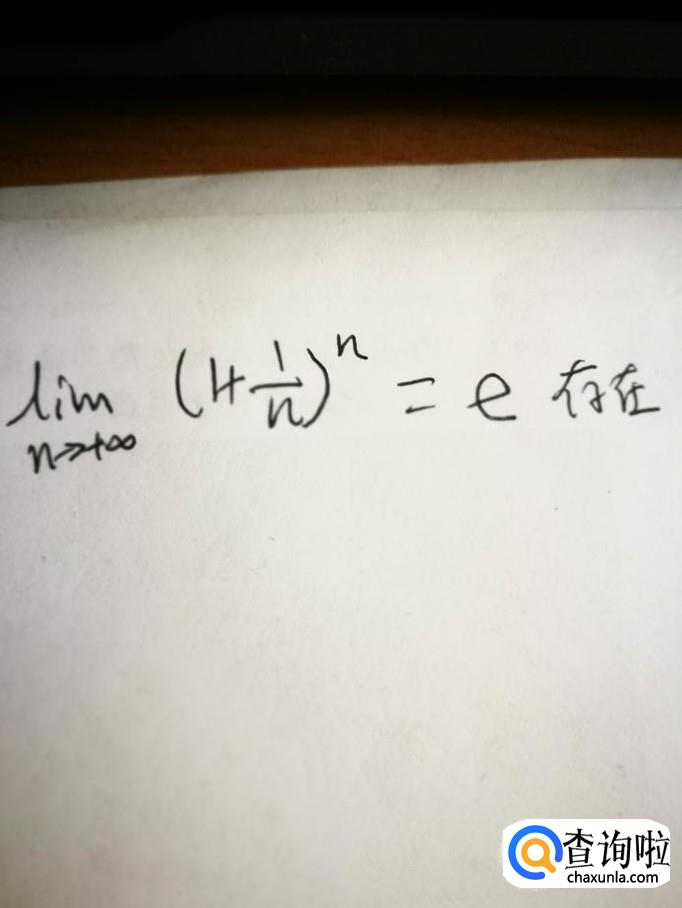 lim n→+∞ (1+1/n)^n = e 存在
查询啦
chaxunla.com